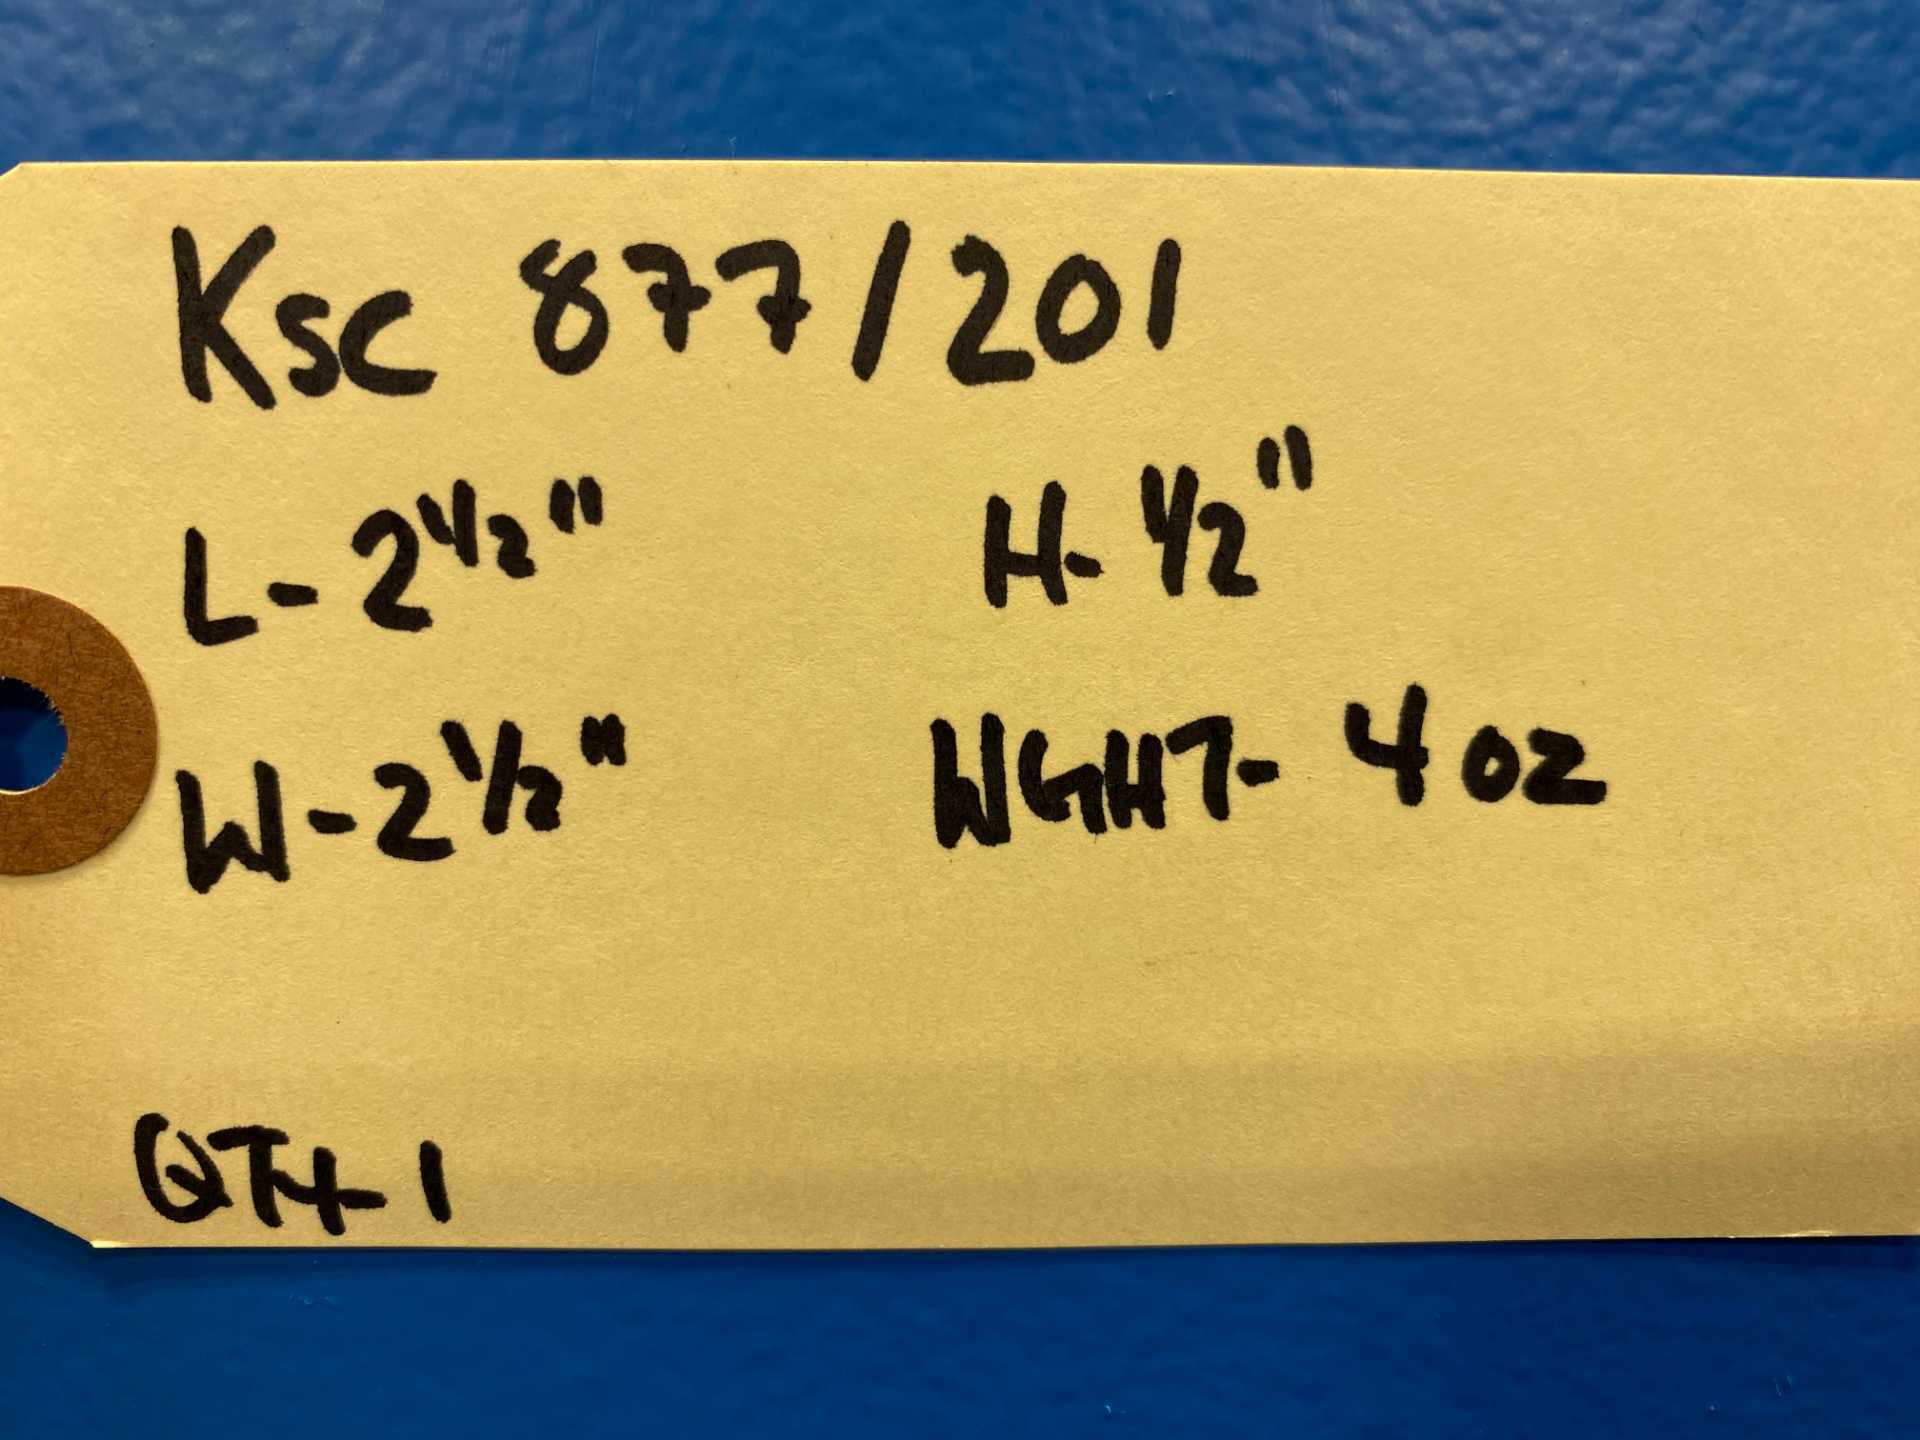 Ksc 877/201
L-2 1/2" H-1/2"
W-2 1/2" WGHT-4 oz
QTY-1